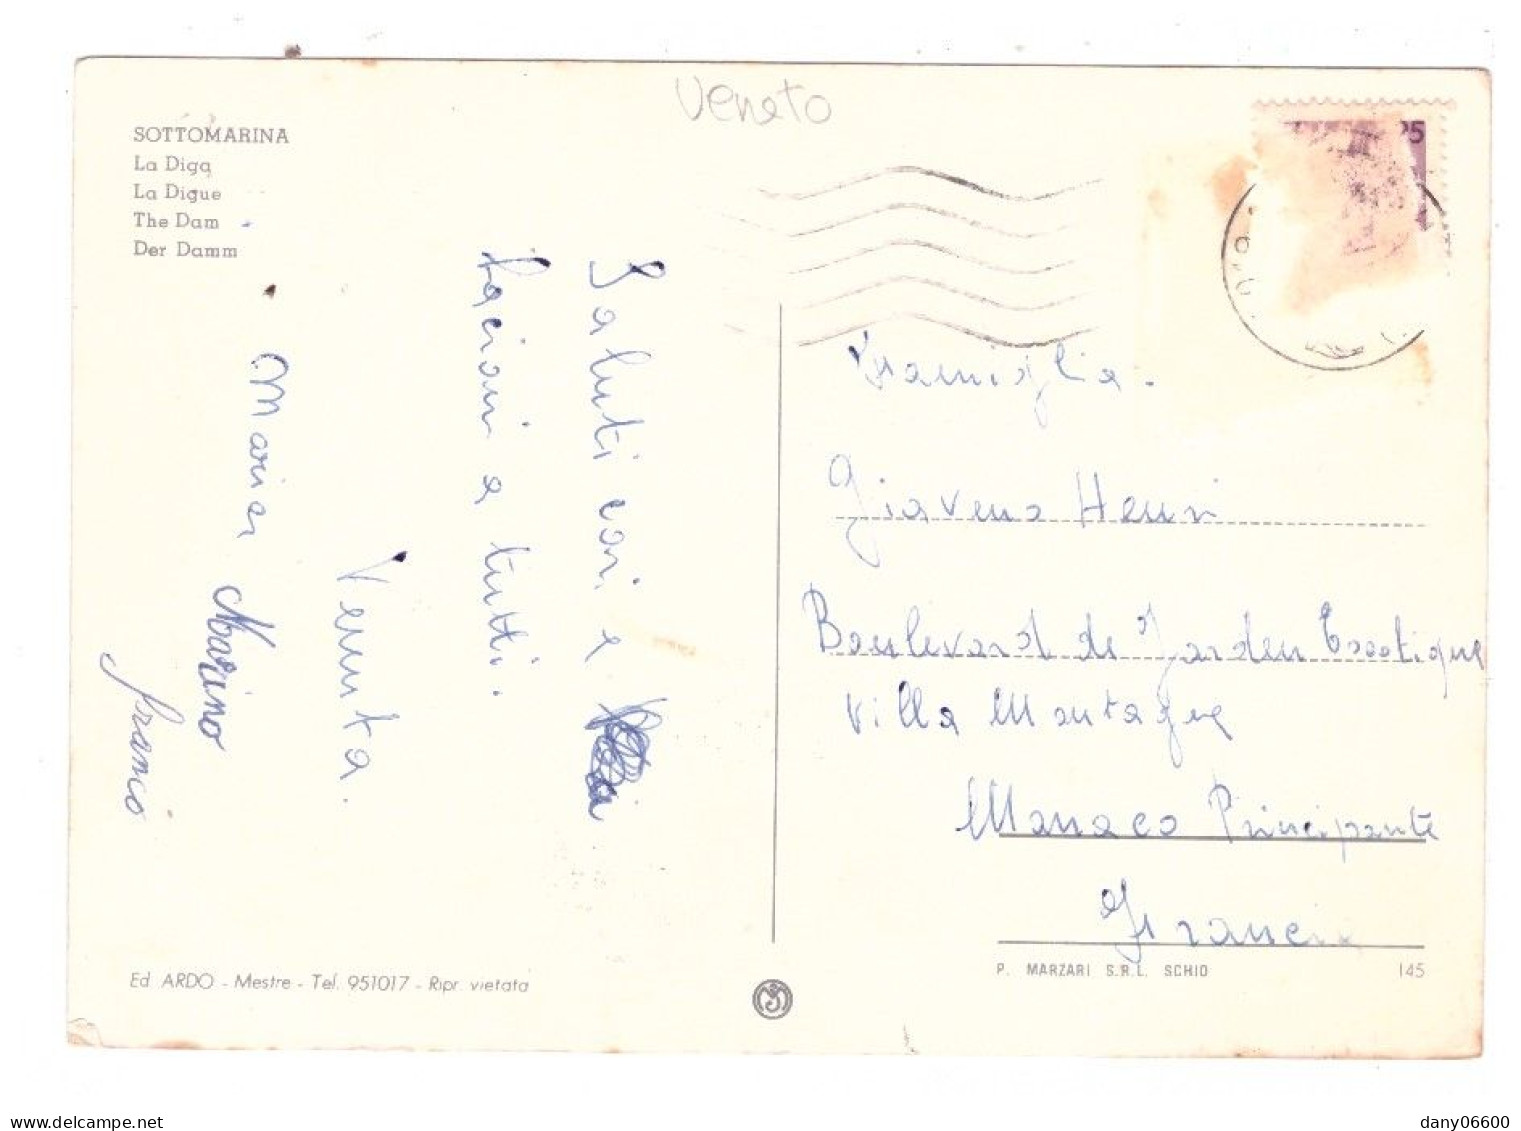 Veneto
SOTTOMARINA
La Diga
La Digue
The Dam
Der Damm
25
Saluti cari e
bacioni a tutti.
Venuta.
Marier
Marino
Franco
Famiglia.
Giaveno Henri
Boulevard de Jarden Exotique
Villa Montagne
Monaco Principante
Francia
Ed ARDO - Mestre - Tel. 951017 - Ripr. vietata
P. MARZARI S.R.L. SCHIO 145
delcampe.net
dany06600